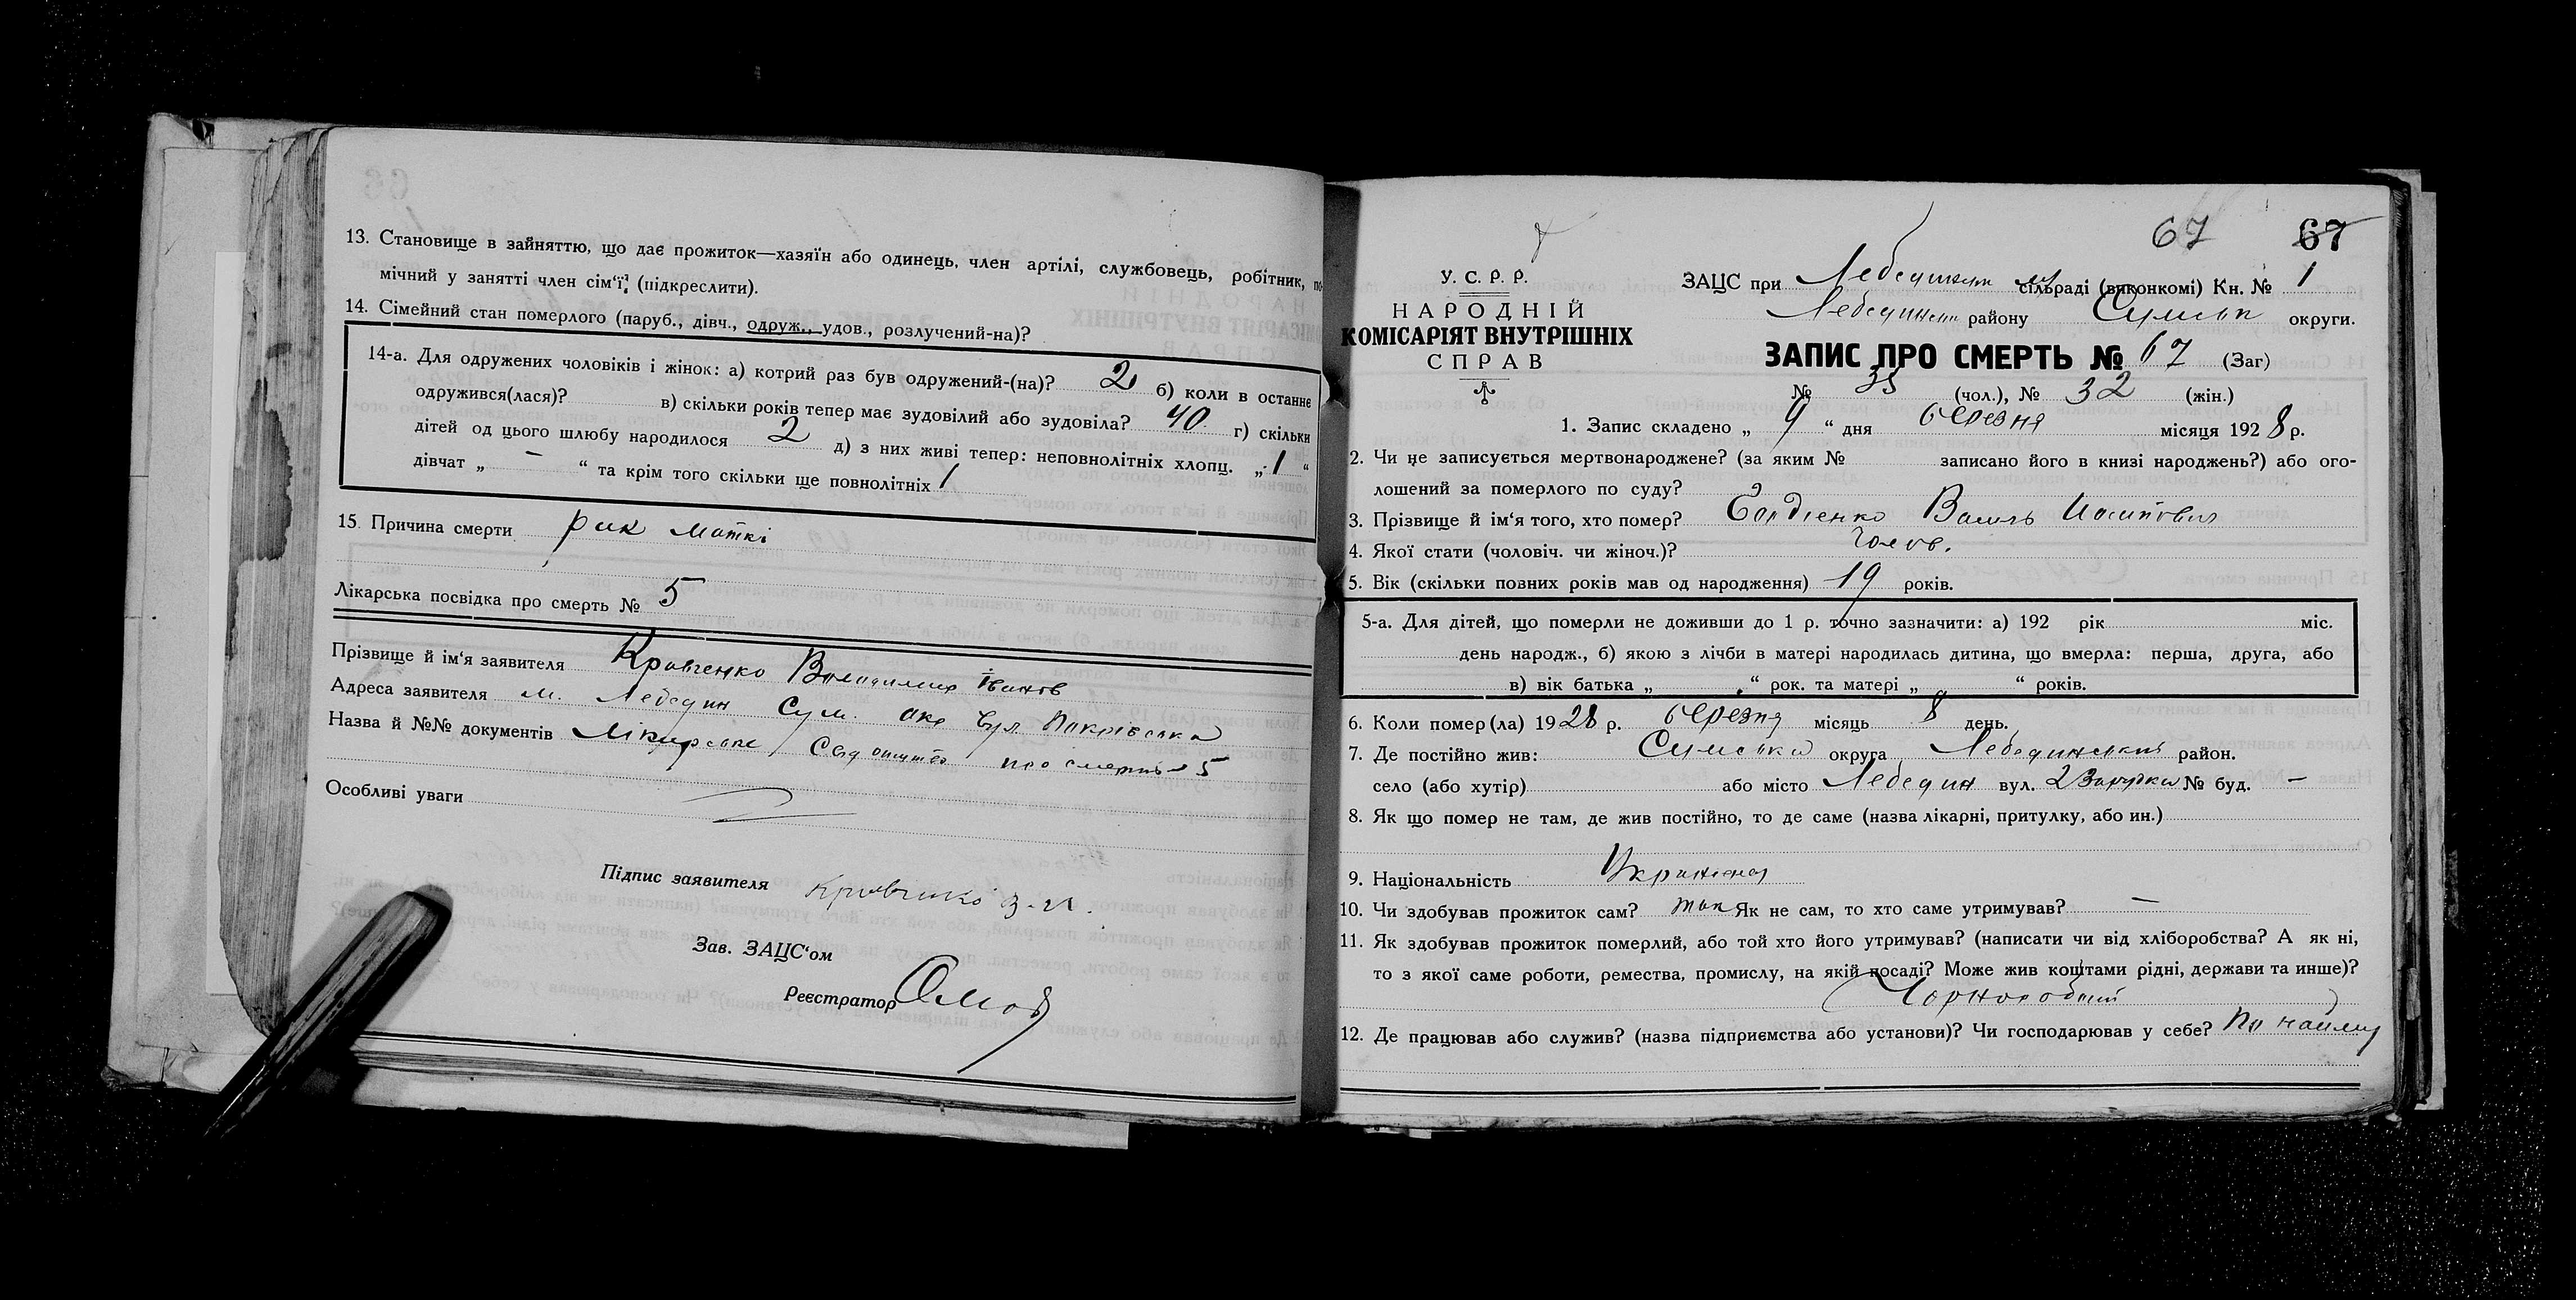 13. Становище в зайняттю, що дає прожиток—хазяїн або одинець, член артілі, службовець, робітник, по-
мічний у занятті член сім'ї, (підкреслити).
14. Сімейний стан померлого (паруб., дівч., одруж., удов., розлучений-на)?
14-а. Для одружених чоловіків і жінок: а) котрий раз був одружений-(на)? 2 б) коли в останнє
одружився(лася)? в) скільки років тепер має зудовілий або зудовіла? 40 г) скільки
дітей од цього шлюбу народилося 2 д) з них живі тепер: неповнолітніх хлопц. „1“
дівчат „ — “ та крім того скільки ще повнолітніх 1
15. Причина смерти рак маткі
Лікарська посвідка про смерть № 5
Прізвище й ім'я заявителя Кравченко Володимир Іванов
Адреса заявителя м. Лебедин Сум. окр вул Покрівська
Назва й №№ документів Лікарське про смерть 5
Особливі уваги
Підпис заявителя Кравченко
Зав. ЗАЦС'ом
Реєстратор
67 67
У. С. Р. Р.
НАРОДНІЙ
КОМІСАРІЯТ ВНУТРІШНІХ
СПРАВ
ЗАЦС при Лебединськ сільраді (виконкомі) Кн. № 1
Лебединськ району Сумськ округи.
ЗАПИС ПРО СМЕРТЬ № 67 (Заг)
№ 35 (чол.), № 32 (жін.)
1. Запис складено „ 9 “ дня березня місяця 1928 р.
2. Чи це записується мертвонароджене? (за яким № записано його в книзі народжень?) або ого-
лошений за померлого по суду?
3. Прізвище й ім'я того, хто помер? Василь
4. Якої стати (чоловіч. чи жіноч.)? Чолов.
5. Вік (скільки повних років мав од народження) 19 років.
5-а. Для дітей, що померли не доживши до 1 р. точно зазначити: а) 192 рік міс.
день народж., б) якою з лічби в матері народилась дитина, що вмерла: перша, друга, або
в) вік батька „ “ рок. та матері „ “ років.
6. Коли помер(ла) 1928 р. березня місяць 8 день.
7. Де постійно жив: Сумська округа Лебединський район.
село (або хутір) або місто Лебедин вул. № буд. —
8. Як що помер не там, де жив постійно, то де саме (назва лікарні, притулку, або ин.)
9. Національність
10. Чи здобував прожиток сам? так Як не сам, то хто саме утримував? —
11. Як здобував прожиток померлий, або той хто його утримував? (написати чи від хліборобства? А як ні,
то з якої саме роботи, ремества, промислу, на якій посаді? Може жив коштами рідні, держави та инше)?
Чорноробчий
12. Де працював або служив? (назва підприємства або установи)? Чи господарював у себе? По найму